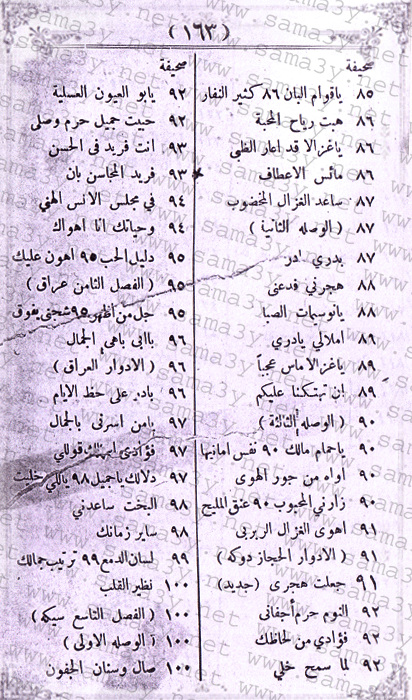 ( ١٦٣ )
صحيفة
٨٥ ياقوام البان ٨٦ كثير النفار
٨٦ هبت رياح المحبة
٨٦ ياغزالا قد اعار الظبي
٨٦ مائس الاعطاف
٨٧ صاعد الغزال المخضوب
٨٧ ( الوصله الثانية )
٨٧ بدري ادر
٨٨ هجرني فدعني
٨٨ يانوسيمات الصبا
٨٩ املالي يابدري
٨٩ ياغزالا ماس عجباً
٨٩ ان تهتكنا عليكم
٩٠ ( الوصله الثالثة )
٩٠ ياحمام مالك ٩٠ نفس امانيها
٩٠ اواه من جور الهوى
٩٠ زارني المحبوب ٩٠ عنق المليح
٩١ اهوى الغزال الربربى
٩١ ( الادوار الحجاز دوكه )
٩١ جعلت هجرى (جديد)
٩٢ النوم حرم أجفانى
٩٢ فؤادي من لحاظك
٩٢ لما سمح خلي
صحيفة
٩٢ يابو العيون العسلية
٩٢ حبيت جميل حرم وصلى
٩٣ انت فريد فى الحسن
٩٣ فريد المحاسن بان
٩٤ في مجلس الانس الهني
٩٤ وحياتك انا اهواك
٩٥ دليل الحب ٩٥ اهون عليك
٩٥ ( الفصل الثامن عراق )
٩٥ جل من أظهر ٩٥ شجنى يفوق
٩٦ باابى باهى الجمال
٩٦ ( الادوار العراق )
٩٦ ياده على حظ الايام
٩٧ يامن اسرنى بالجمال
٩٧ فؤادى قوللي
٩٧ دلالك ياجميل ٩٨ ياللي خليت
٩٨ البخت ساعدني
٩٨ ساير زمانك
٩٩ لسان الدمع ٩٩ ترتيب جمالك
١٠٠ نظير القلب
١٠٠ ( الفصل التاسع سيكه )
١٠٠ ( الوصله الاولى )
١٠٠ صال وسنان الجفون